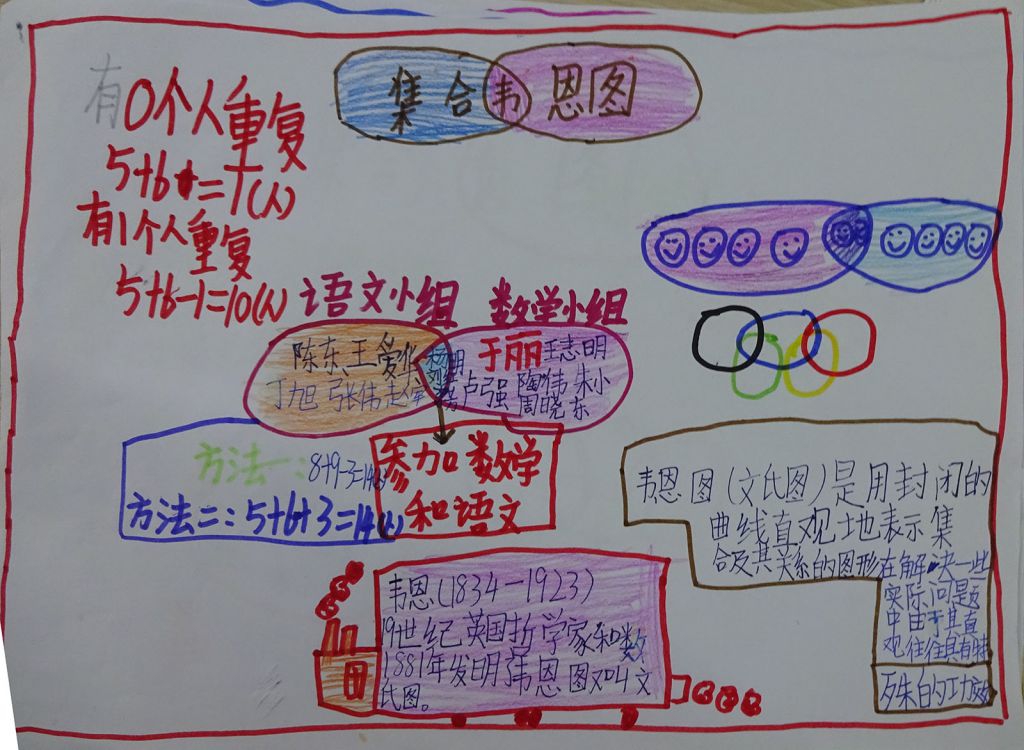 集合韦恩图
有0个人重复
5+6=11(人)
有1个人重复
5+6-1=10(人)
语文小组 数学小组
陈东、王爱华
丁旭 张伟 赵军
杨明
刘
于丽 王志明
卢强 陶伟 朱小
周晓东
方法一:8+9-3=14(人)
方法二:5+6+3=14(人)
参加数学
和语文
韦恩图(文氏图)是用封闭的
曲线直观地表示集
合及其关系的图形在解决一些
实际问题
中由于其直
观往往具有特
殊的功效
韦恩(1834-1923)
19世纪英国哲学家和数
1881年发明韦恩图又叫文
氏图。